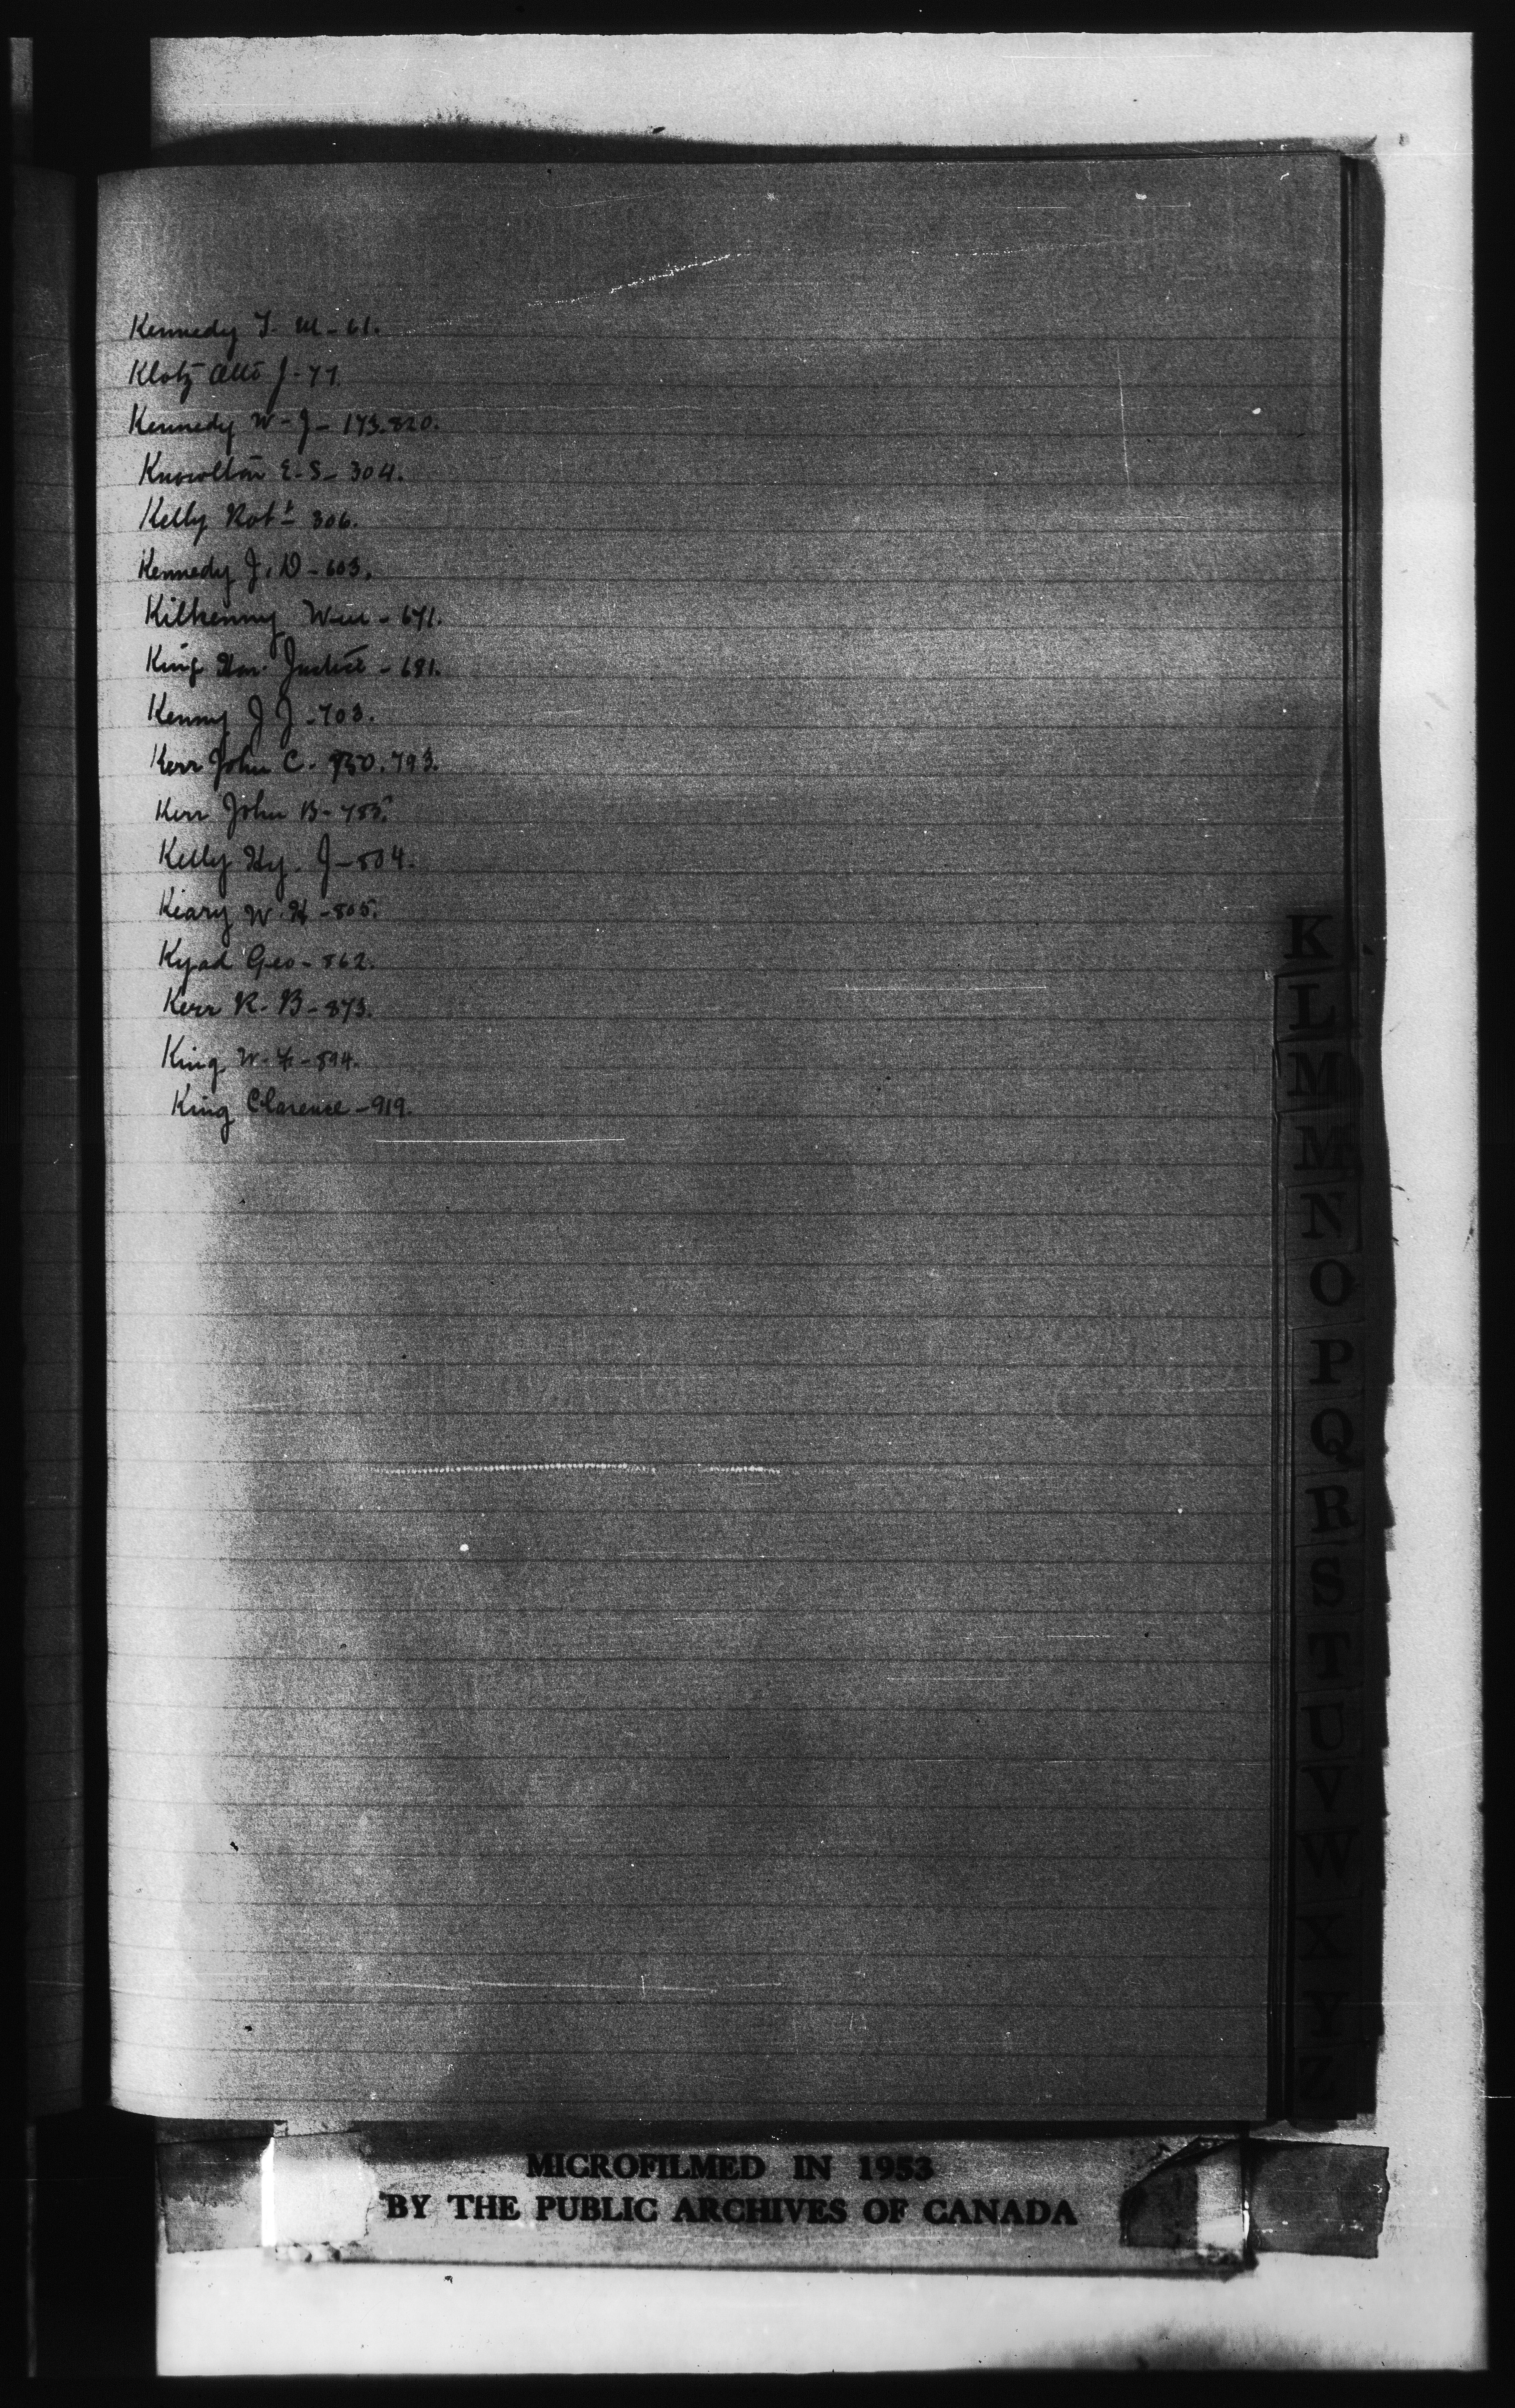 Kennedy T. M - 61.
Klotz Otto J - 77.
Kennedy W - J - 173.820.
Knowlton E - S - 304.
Kelly Robt - 306.
Kennedy J. D - 603.
Kilkenny Wm - 671.
King Hon. Justice - 681.
Kenny J J - 703.
Kerr John C. 793.
Kerr John B - 785.
Kelly Hy. J - 804.
Keary W. H - 805.
Kyad Geo - 862.
Kerr R. B - 873.
King W. F - 894.
King Clarence - 919.
K
L
M
M
N
O
P
Q
R
S
T
U
V
W
X
Y
Z
MICROFILMED IN 1953
BY THE PUBLIC ARCHIVES OF CANADA